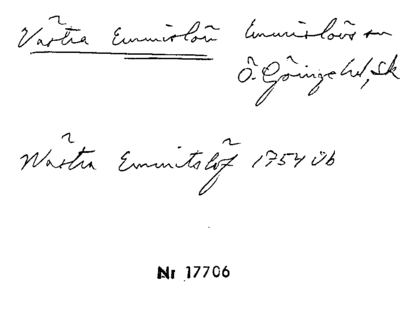 Västra Emmislöv Emmislövs sn
Ö. Göinge hd, Sk
Wästra Emmitslöf 1754 Jb
Nr 17706